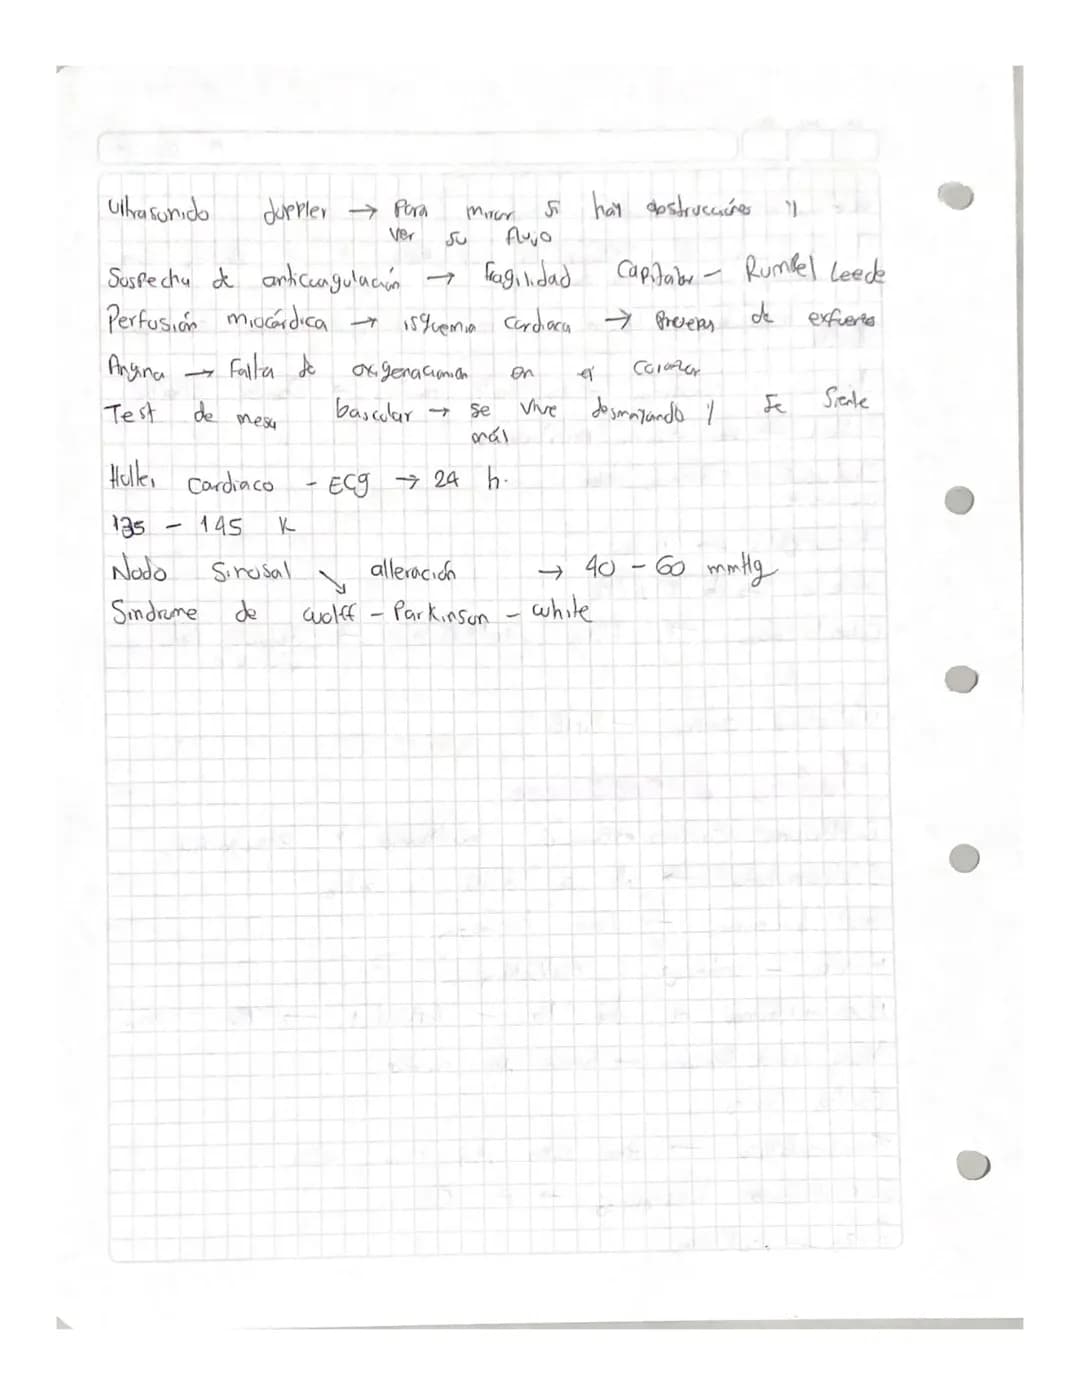 Ultrasonido duppler → Para mirar si hay obstrucciones y
ver su flujo
Sospecha de anticuagulación → fragilidad Capilar - Rumpel Leede
Perfusión miocárdica → isquemia Cardiaca → Pruebas de exfuerto
Angina → Falta de oxigenación en el Corazon
Test de mesa bascular → se vive desmayando y se Siente
mál
Holter Cardiaco - ECg → 24 h.
135 - 145 K
Nodo Sinusal ↘ alteración → 40 - 60 mmHg
Sindrome de wolff - Parkinson - white